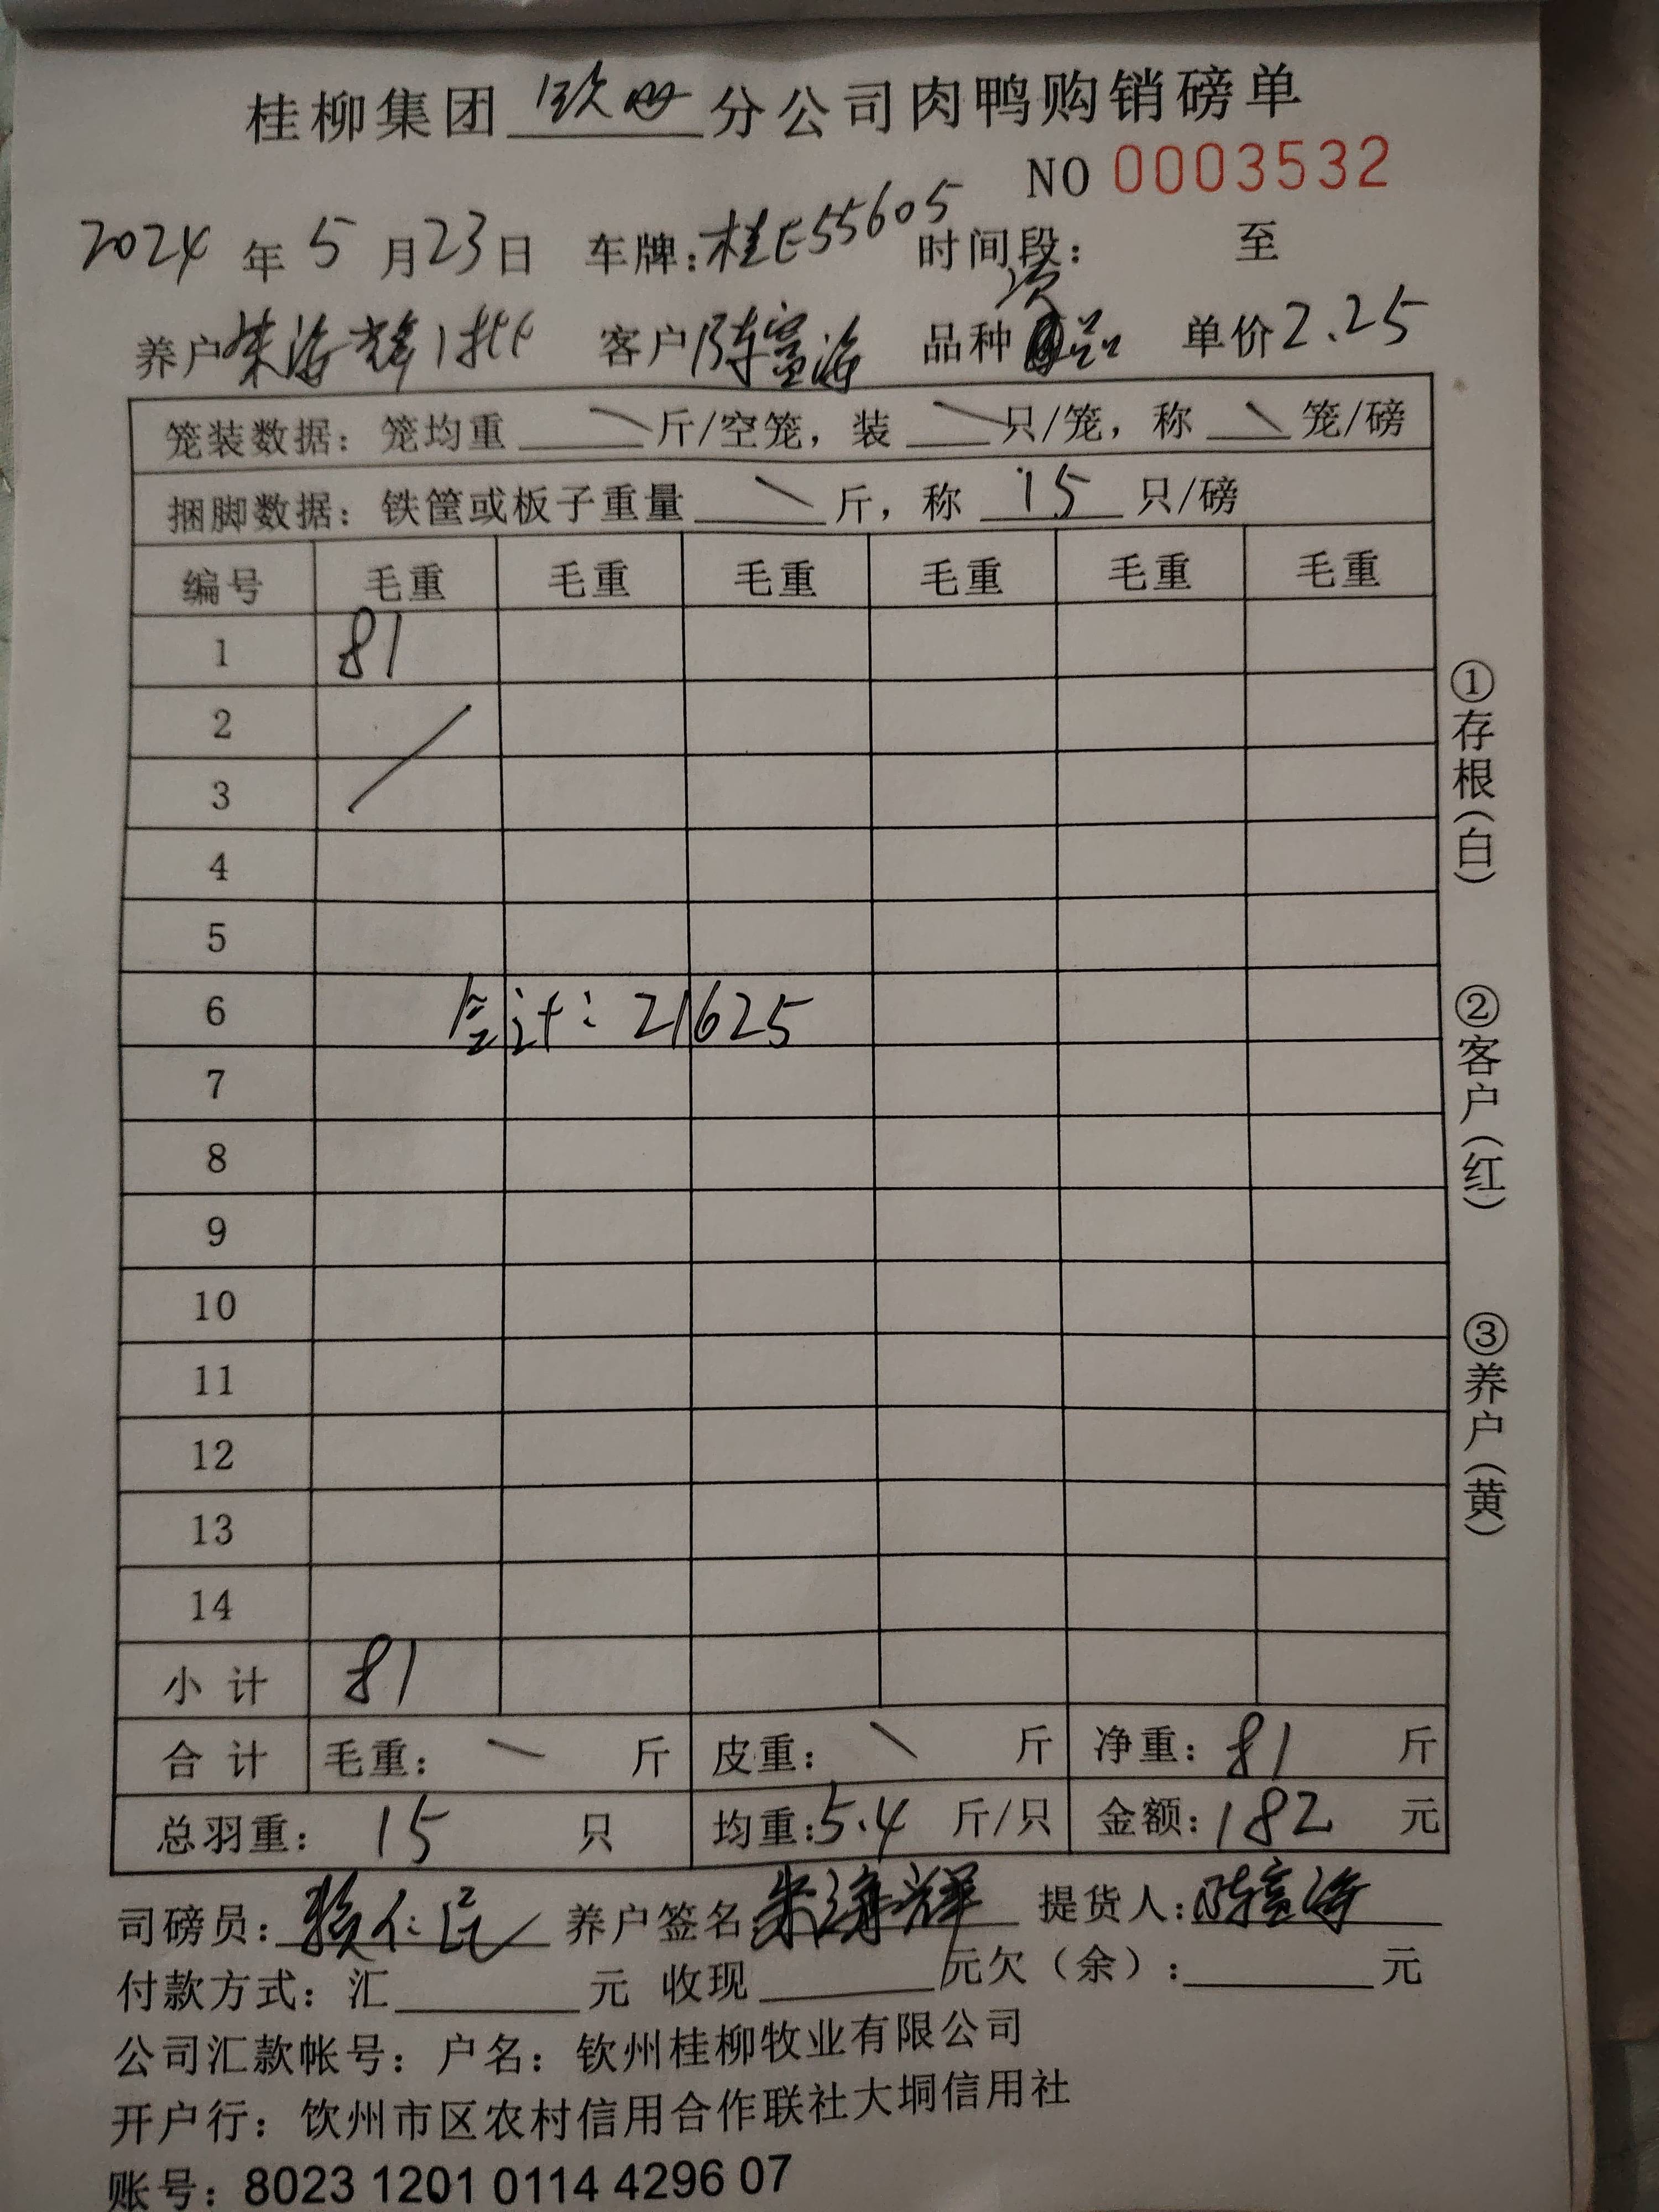 桂柳集团 钦州 分公司肉鸭购销磅单
NO 0003532
2024 年 5 月 23 日 车牌:桂E55605 时间段: 至
养户 朱海辉1批 客户 陈富海 品种 次品 单价 2.25
笼装数据: 笼均重 \ 斤/空笼, 装 \ 只/笼, 称 \ 笼/磅
捆脚数据: 铁筐或板子重量 \ 斤, 称 15 只/磅
编号 毛重 毛重 毛重 毛重 毛重 毛重
1 81
2
3
4
5
6 合计: 21625
7
8
9
10
11
12
13
14
小 计 81
合 计 毛重: \ 斤 皮重: \ 斤 净重: 81 斤
总羽重: 15 只 均重:5.4 斤/只 金额:182 元
①存根(白)
②客户(红)
③养户(黄)
司磅员: 赖仁 养户签名: 朱海辉 提货人: 陈富海
付款方式: 汇 元 收现 元欠(余): 元
公司汇款帐号: 户名: 钦州桂柳牧业有限公司
开户行: 饮州市区农村信用合作联社大垌信用社
账号: 8023 1201 0114 4296 07